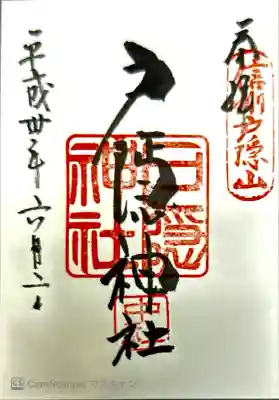 奉拝
信州戸隠山
戸隠神社
戸隠
神社
平成卅年六月二日
CS CamScanner でスキャン